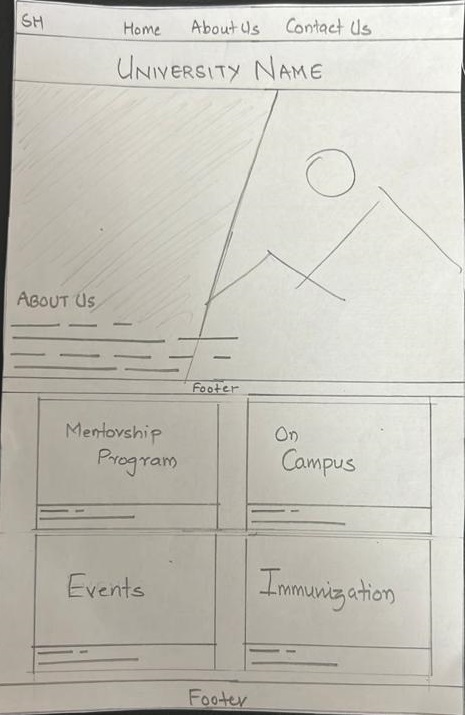 SH
Home About Us Contact Us
UNIVERSITY NAME
ABOUT US
Footer
Mentorship
Program
On
Campus
Events
Immunization
Footer